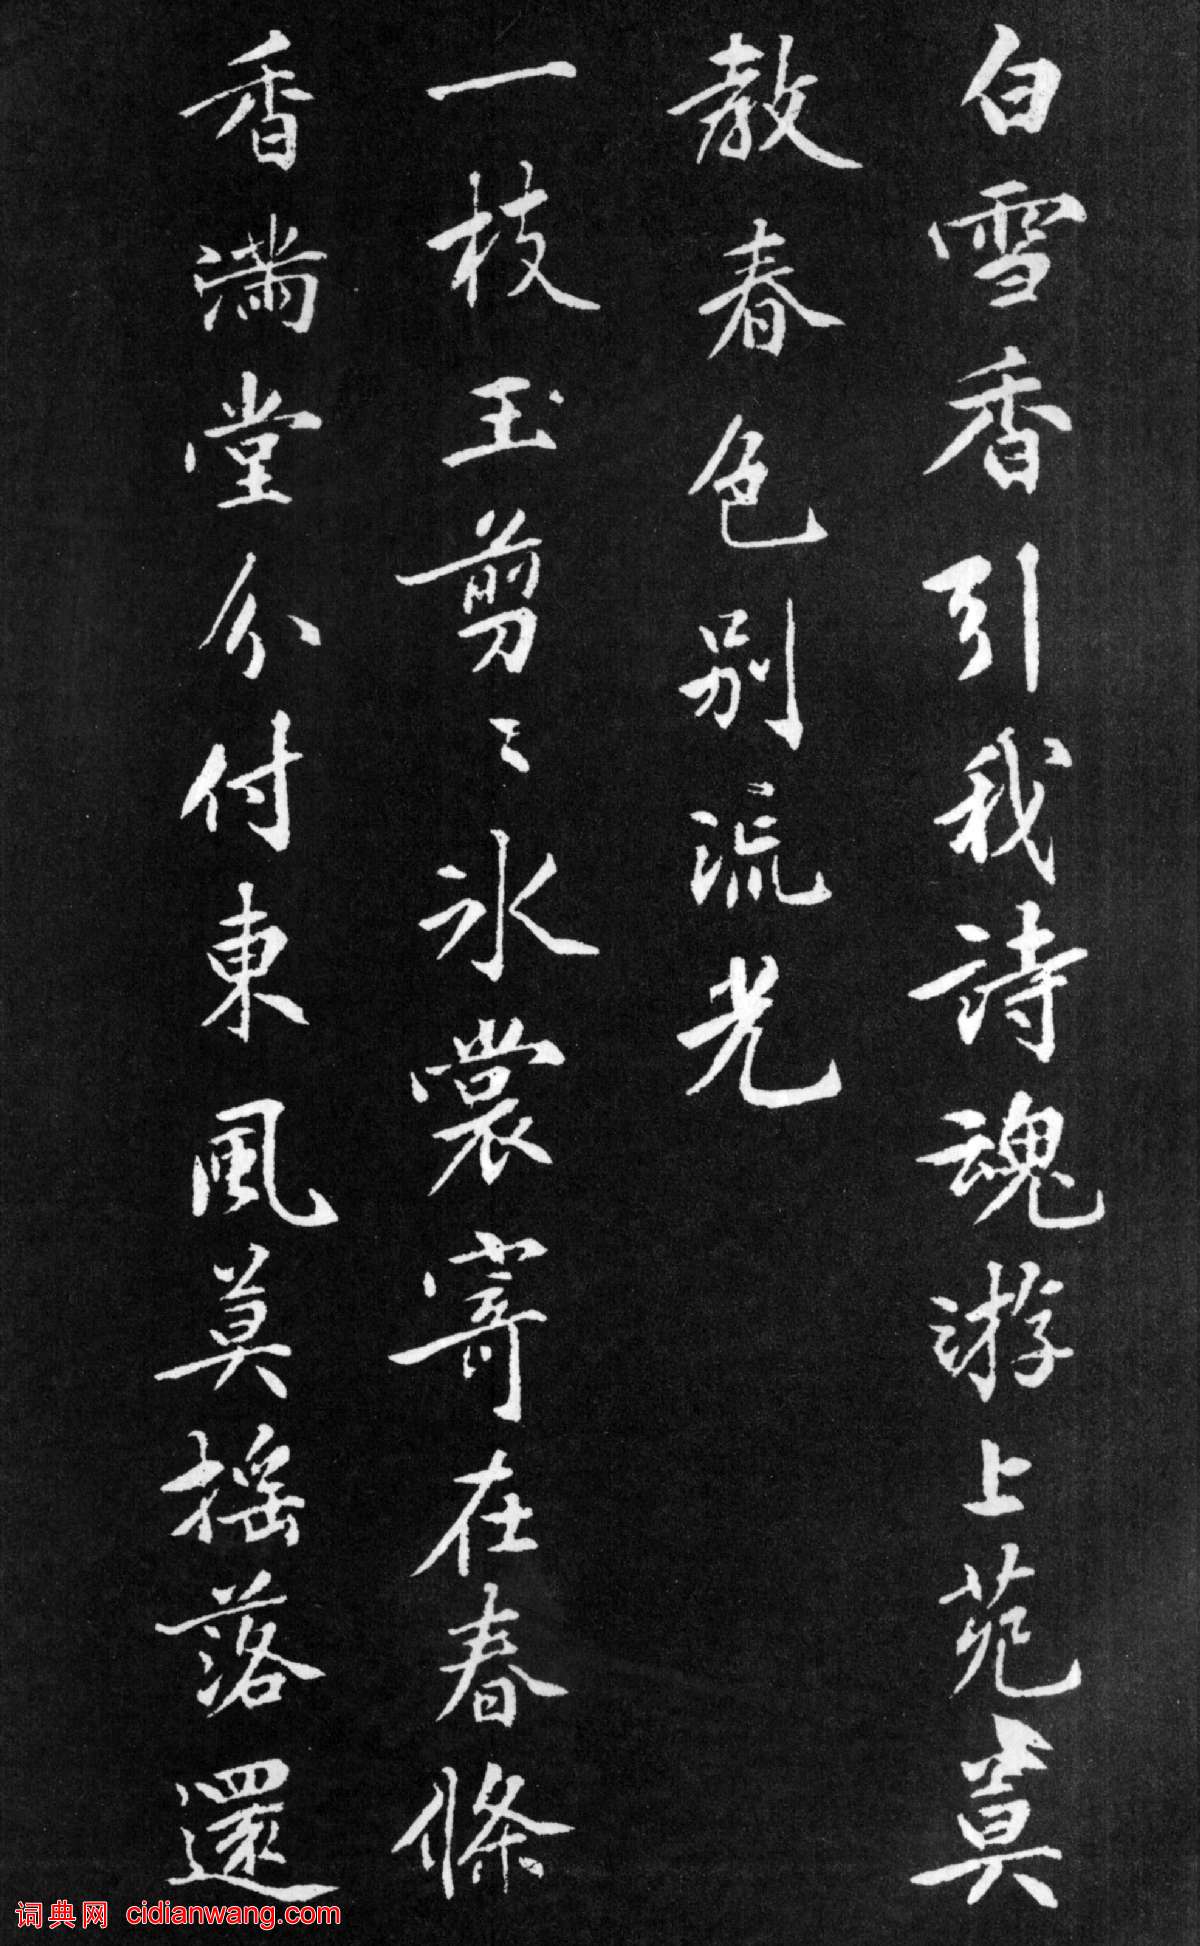 白雪香引我詩魂游上苑莫
教春色別流光
一枝玉剪〻氷裳寄在春條
香滿堂分付東風莫搖落還
词典网 cidianwang.com